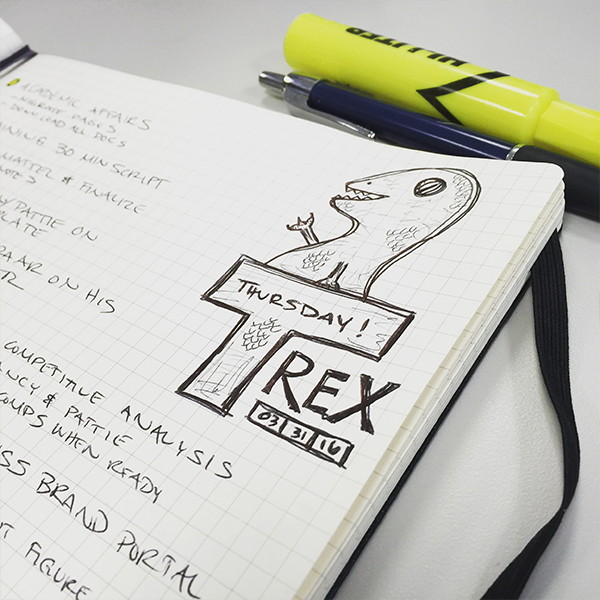 ACADEMIC AFFAIRS
- MIGRATE PAGES
- DOWNLOAD ALL DOCS
NING 30 MIN SCRIPT
MATTEL & FINALIZE
NOTE 3
PATTIE ON
LATE
ON HIS
COMPETITIVE ANALYSIS
NCY & PATTIE
COMPS WHEN READY
SS BRAND PORTAL
FIGURE
THURSDAY!
T REX
03 31 16
HI-LITER